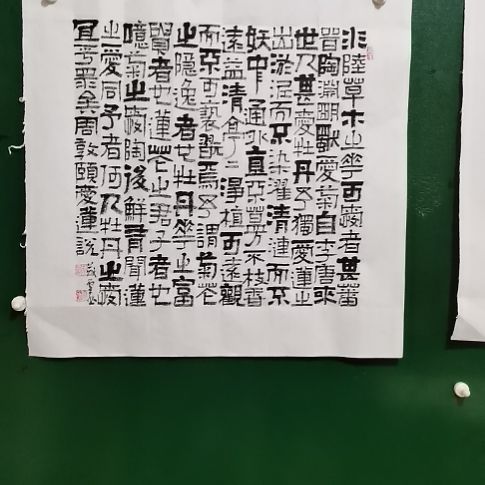 水陸草木之華可愛者甚蕃
晉陶淵明獨愛菊自李唐來
世人甚愛牡丹予獨愛蓮之
出淤泥而不染濯清漣而不
妖中通外直不蔓不枝香
遠益清亭〻淨植可遠觀
而不可褻翫焉予謂菊花
之隱逸者也牡丹華之富
貴者也蓮花之君子者也
噫菊之愛陶後鮮有聞蓮
之愛同予者何人牡丹之愛
宜乎眾矣周敦頤愛蓮說